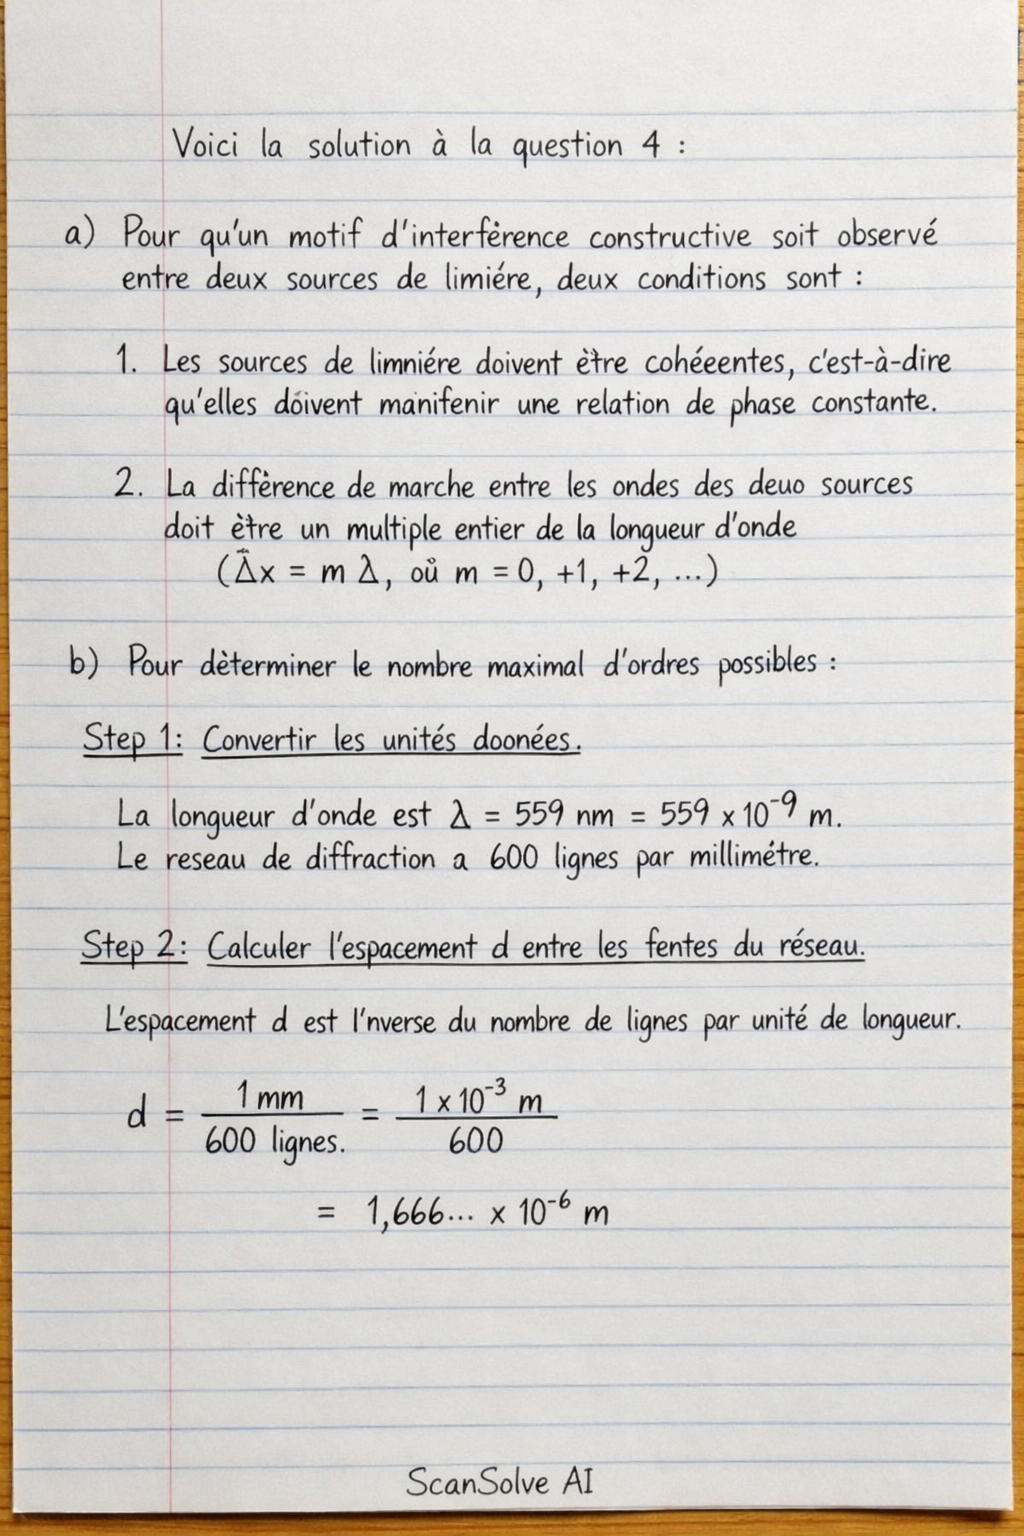 Voici la solution à la question 4 :
a) Pour qu'un motif d'interférence constructive soit observé
entre deux sources de limiére, deux conditions sont :
1. Les sources de limniére doivent ètre cohéeentes, c'est-à-dire
qu'elles doivent manifenir une relation de phase constante.
2. La diffèrence de marche entre les ondes des deuo sources
doit ètre un multiple entier de la longueur d'onde
(Δx = m λ, oů m = 0, +1, +2, ...)
b) Pour dèterminer le nombre maximal d'ordres possibles :
Step 1: Convertir les unités doonées.
La longueur d'onde est λ = 559 nm = 559 x 10⁻⁹ m.
Le reseau de diffraction a 600 lignes par millimétre.
Step 2: Calculer l'espacement d entre les fentes du réseau.
L'espacement d est l'nverse du nombre de lignes par unité de longueur.
d = 1 mm / 600 lignes. = 1 x 10⁻³ m / 600
= 1,666... x 10⁻⁶ m
ScanSolve AI